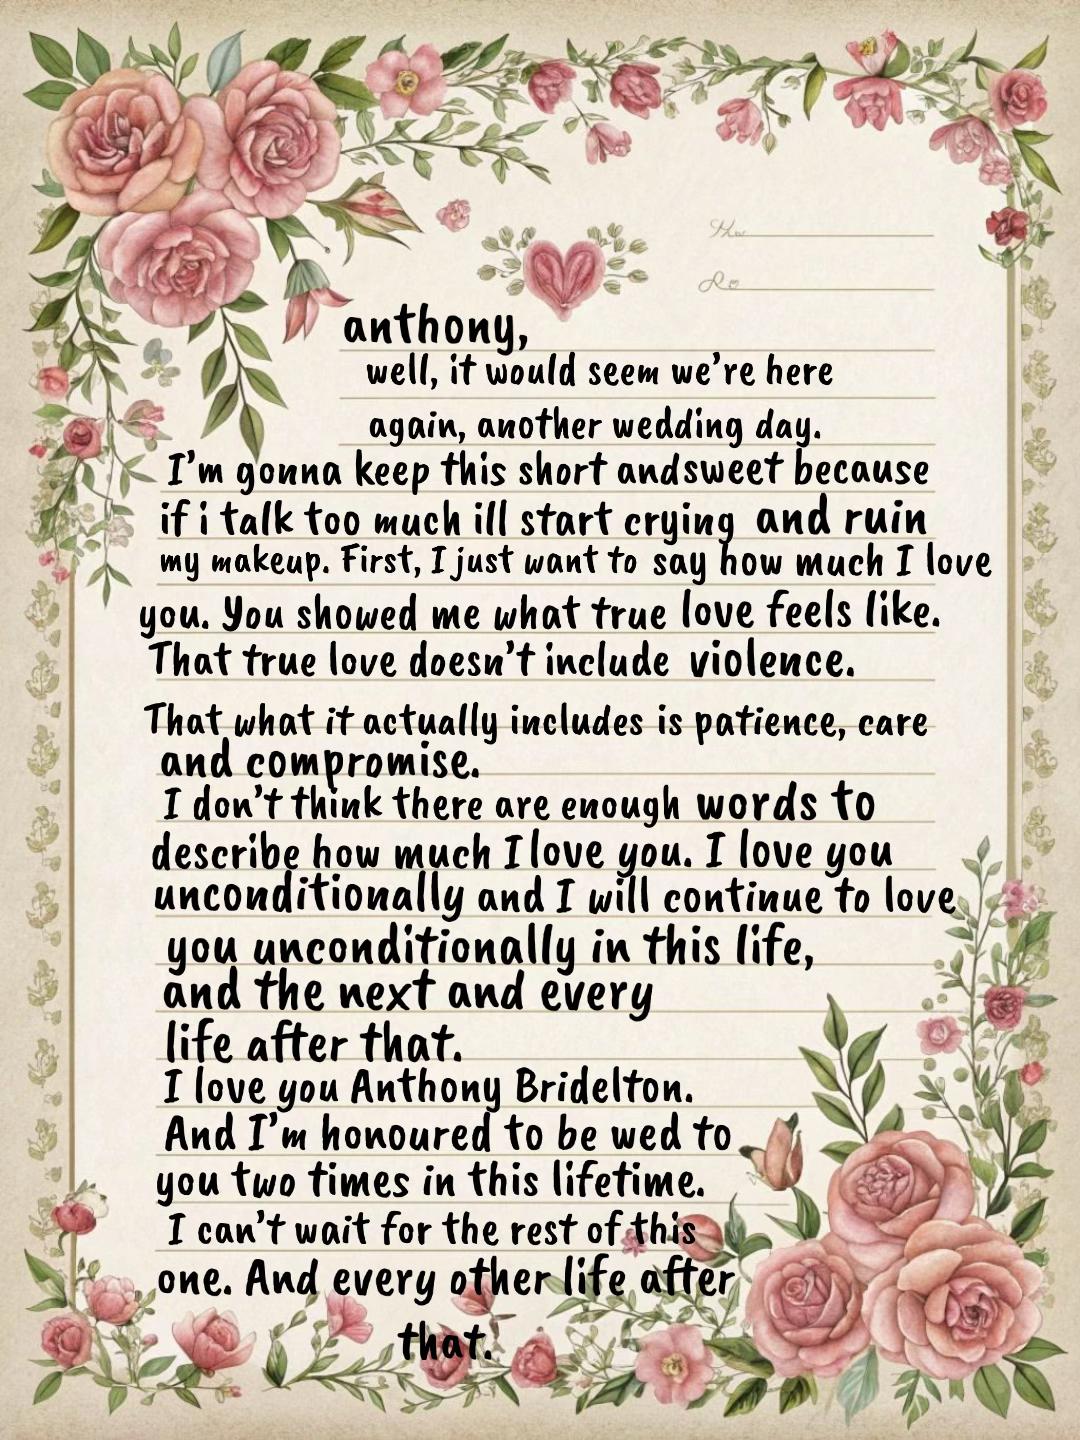 anthony,
well, it would seem we're here
again, another wedding day.
I'm gonna keep this short andsweet because
if i talk too much ill start crying and ruin
my makeup. First, I just want to say how much I love
you. You showed me what true love feels like.
That true love doesn't include violence.
That what it actually includes is patience, care
and compromise.
I don't think there are enough words to
describe how much I love you. I love you
unconditionally and I will continue to love
you unconditionally in this life,
and the next and every
life after that.
I love you Anthony Bridelton.
And I'm honoured to be wed to
you two times in this lifetime.
I can't wait for the rest of this
one. And every other life after
that.